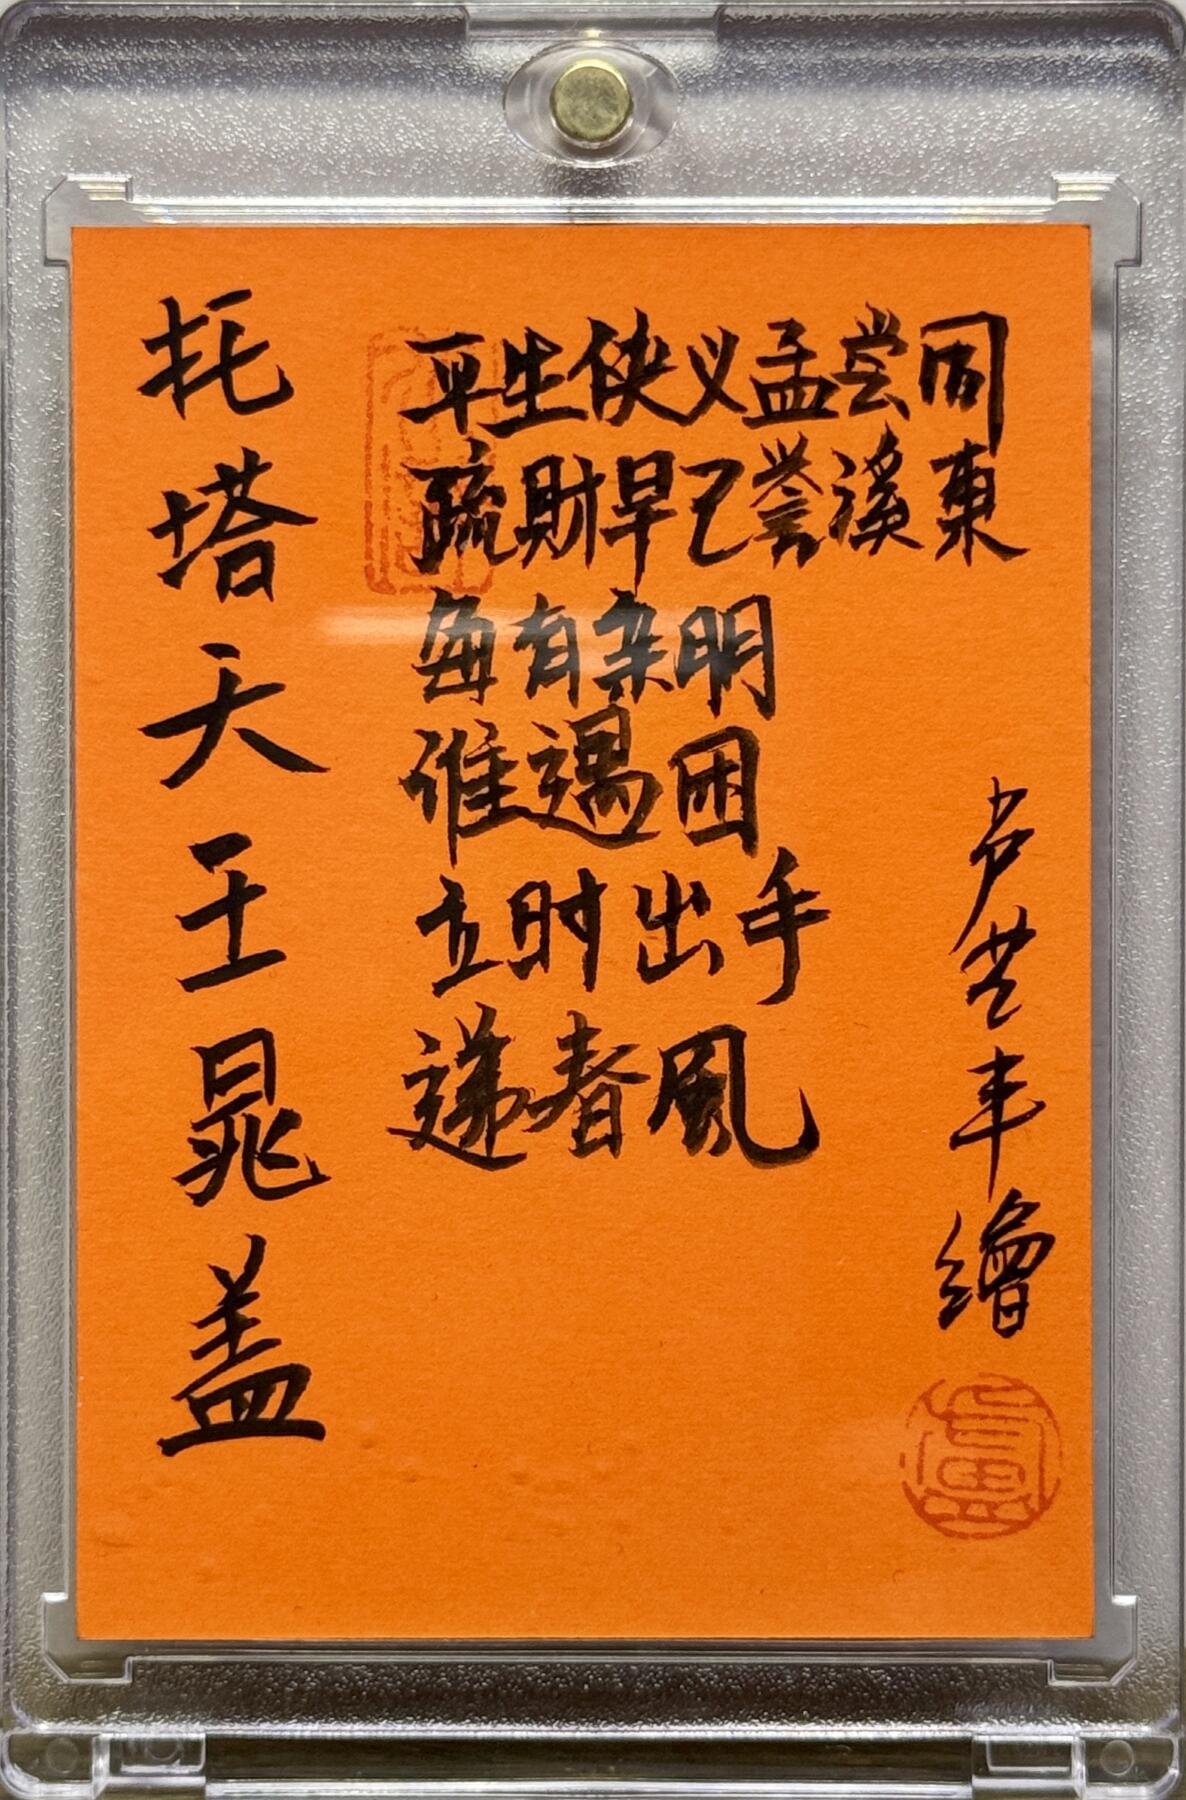 托塔天王晁盖
平生侠义孟尝同
疏财早已誉溪東
每有杂明
谁遇困
立时出手
递春風
卢芸丰繪